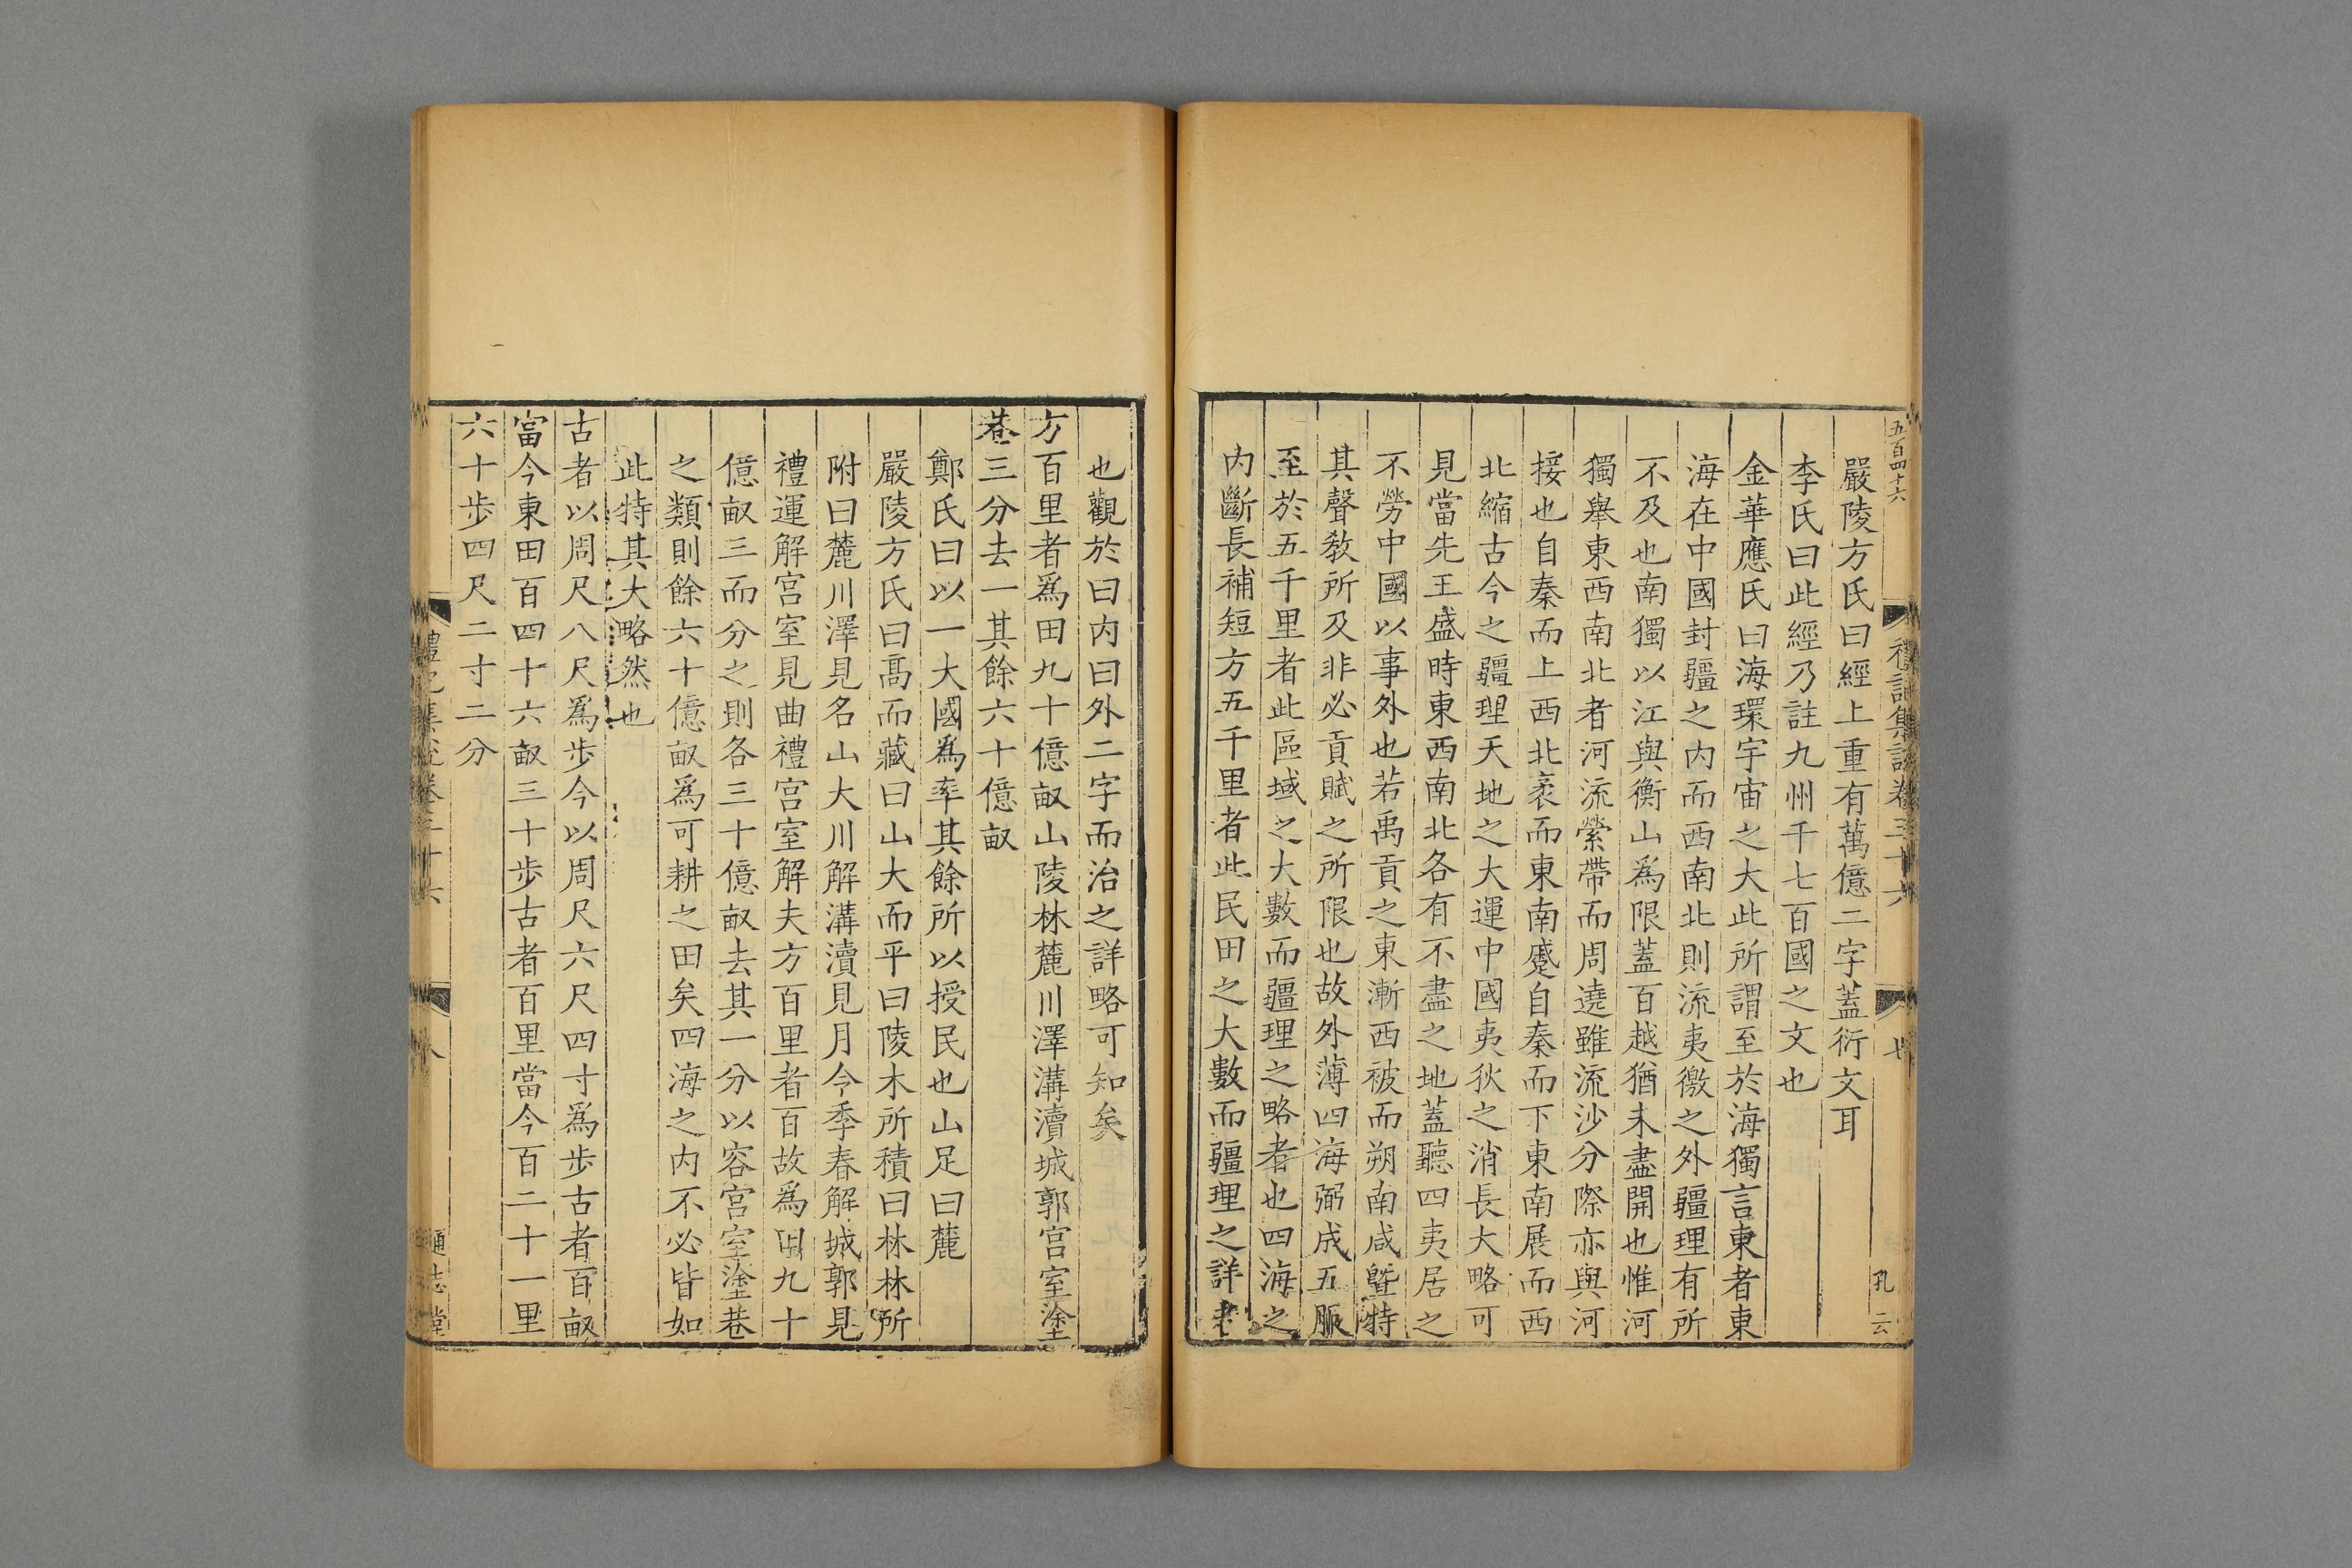 五百四十六
禮記集說卷三十六
七
孔 云
嚴陵方氏曰經上重有萬億二字蓋衍文耳
李氏曰此經乃註九州千七百國之文也
金華應氏曰海環宇宙之大此所謂至於海獨言東者東
海在中國封疆之内而西南北則流夷徼之外疆理有所
不及也南獨以江與衡山為限蓋百越猶未盡開也惟河
獨舉東西南北者河流縈帶而周遶雖流沙分際亦與河
接也自秦而上西北袤而東南蹙自秦而下東南展而西
北縮古今之疆理天地之大運中國夷狄之消長大略可
見當先王盛時東西南北各有不盡之地蓋聽四夷居之
不勞中國以事外也若禹貢之東漸西被而朔南咸曁特
其聲敎所及非必貢賦之所限也故外薄四海弼成五服
至於五千里者此區域之大數而疆理之略者也四海之
内斷長補短方五千里者此民田之大數而疆理之詳者
也觀於曰内曰外二字而治之詳略可知矣
方百里者爲田九十億畝山陵林麓川澤溝瀆城郭宫室塗
巷三分去一其餘六十億畝
鄭氏曰以一大國爲率其餘所以授民也山足曰麓
嚴陵方氏曰髙而藏曰山大而平曰陵木所積曰林林所
附曰麓川澤見名山大川解溝瀆見月令季春解城郭見
禮運解宫室見曲禮宫室解夫方百里者百故爲田九十
億畝三而分之則各三十億畝去其一分以容宫室塗巷
之類則餘六十億畝爲可耕之田矣四海之内不必皆如
此特其大略然也
古者以周尺八尺爲歩今以周尺六尺四寸爲歩古者百畝
當今東田百四十六畝三十歩古者百里當今百二十一里
六十歩四尺二寸二分
禮記集說卷三十六
八
通志堂